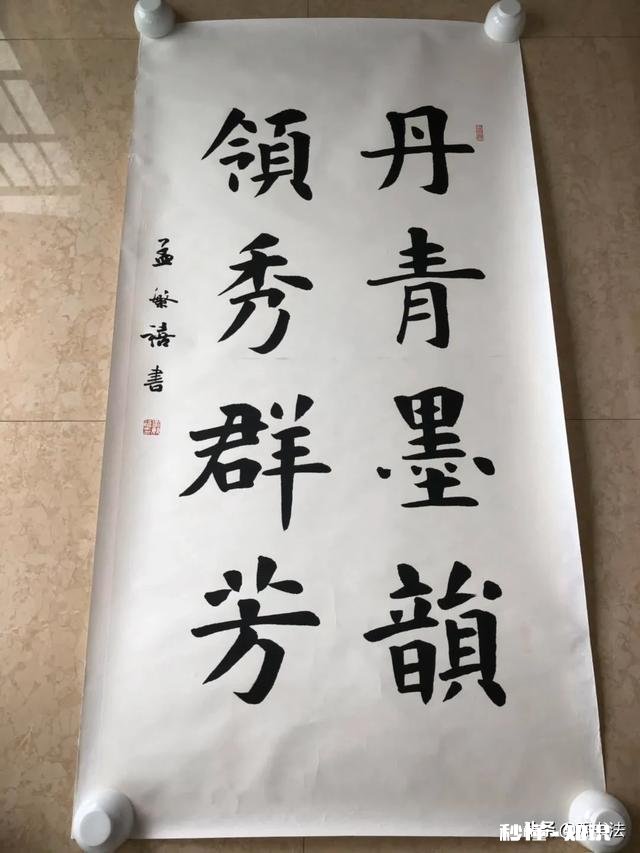 丹青墨韻
領秀群芳
孟繁禧書